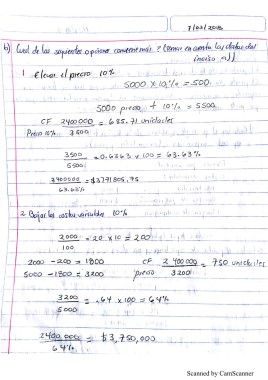 7/02/2018
b) Cual de las siguientes opciones conviene más? (tomar en cuenta los datos del
inciso a))
1 Elevar el precio 10%
5000 x 10% = 500
5000 precio + 10% = 5500
CF 2400000 = 685.71 unidades
Precio 10% 3500
3500 = 0.6363 x 100 = 63.63%
5500
2400000 = $3771805.75
63.63%
2. Bajar los costos variables 10%
2000 = 20 x 10 = 200
100
2000 - 200 = 1800 CF 2 400 000 = 750 unidades
5000 - 1800 = 3200 precio 3200
3200 = .64 x 100 = 64%
5000
2400 000 = $3,750,000
64%
Scanned by CamScanner